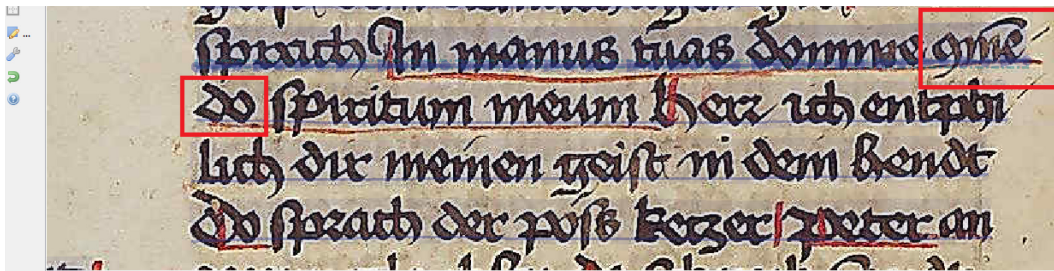 sprach In manus tuas domine ꝯmē
do spiritum meum Herr ich entphi
lich dir meinen geist in dein hendt
Do sprach der pöss ketzer peter an